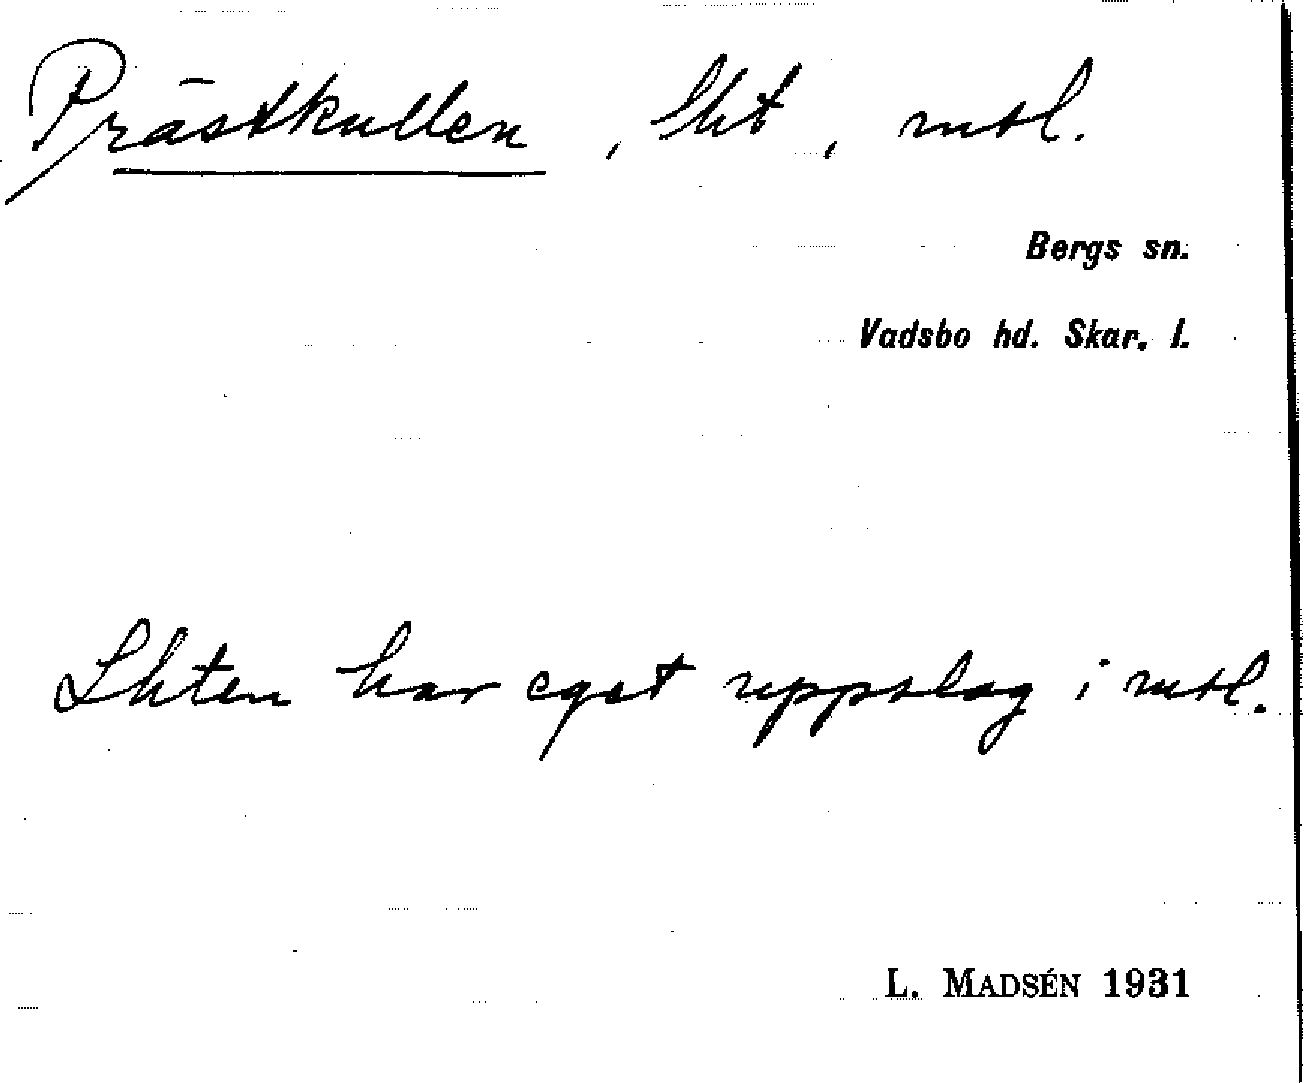 Prästkullen, lht, mtl.
Bergs sn.
Vadsbo hd. Skar. l.
Lhten har eget uppslag i mtl.
L. MADSÉN 1931